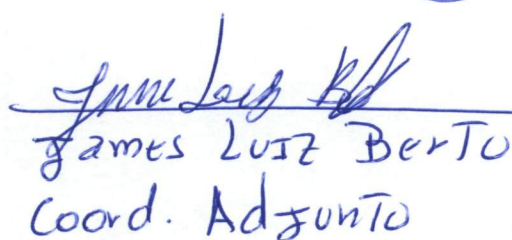 James Luiz Berto
Coord. Adjunto